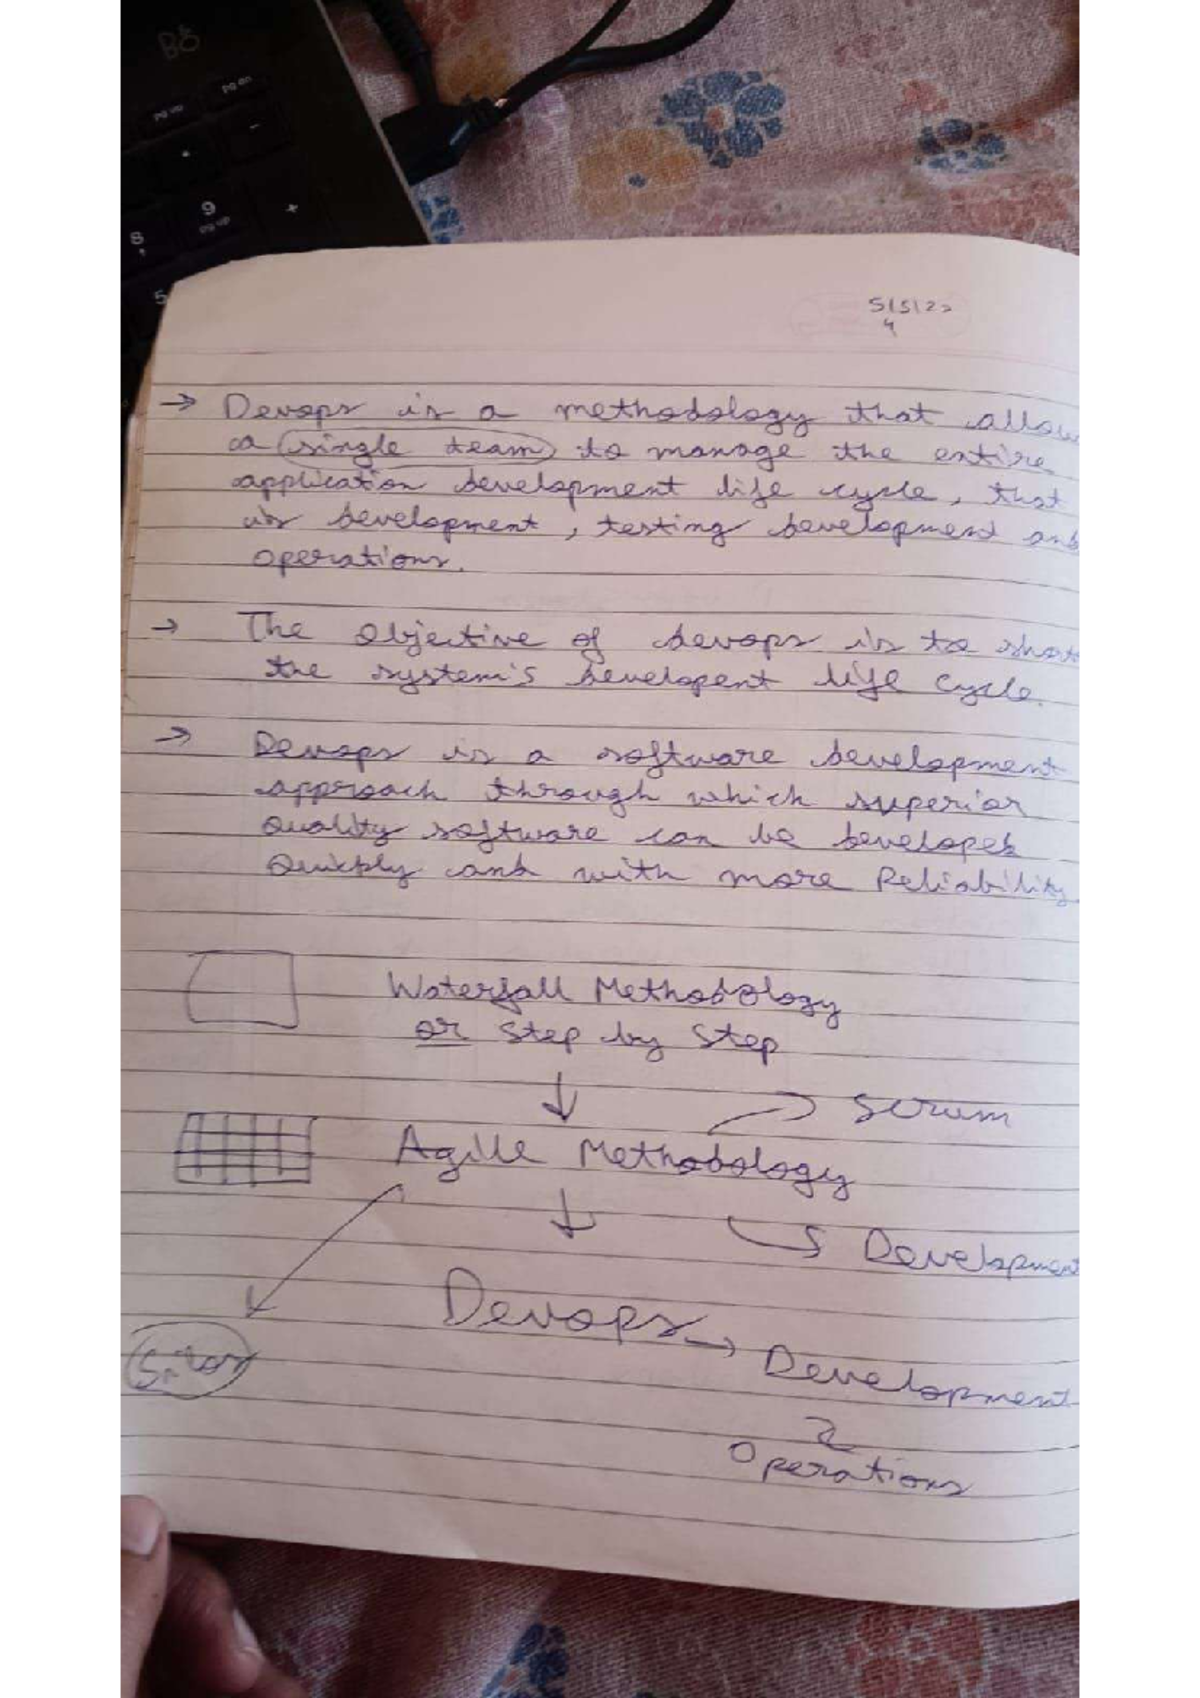 B&O
pg up
pg dn
-
*
9
pg up
+
8
5
4
→ Devops is a methodology that allow
a single team to manage the entire
application development life cycle, that
is development, testing development and
operations.
→ The Objective of devops is to short
the system's developent life cycle.
→ Devops is a software development
approach through which superior
quality software can be developed
Quickly and with more Reliability
Waterfall Methodology
or Step by Step
↓
Agile Methodology → Scrum
↓
→ Development
Devops → Development
&
Operations